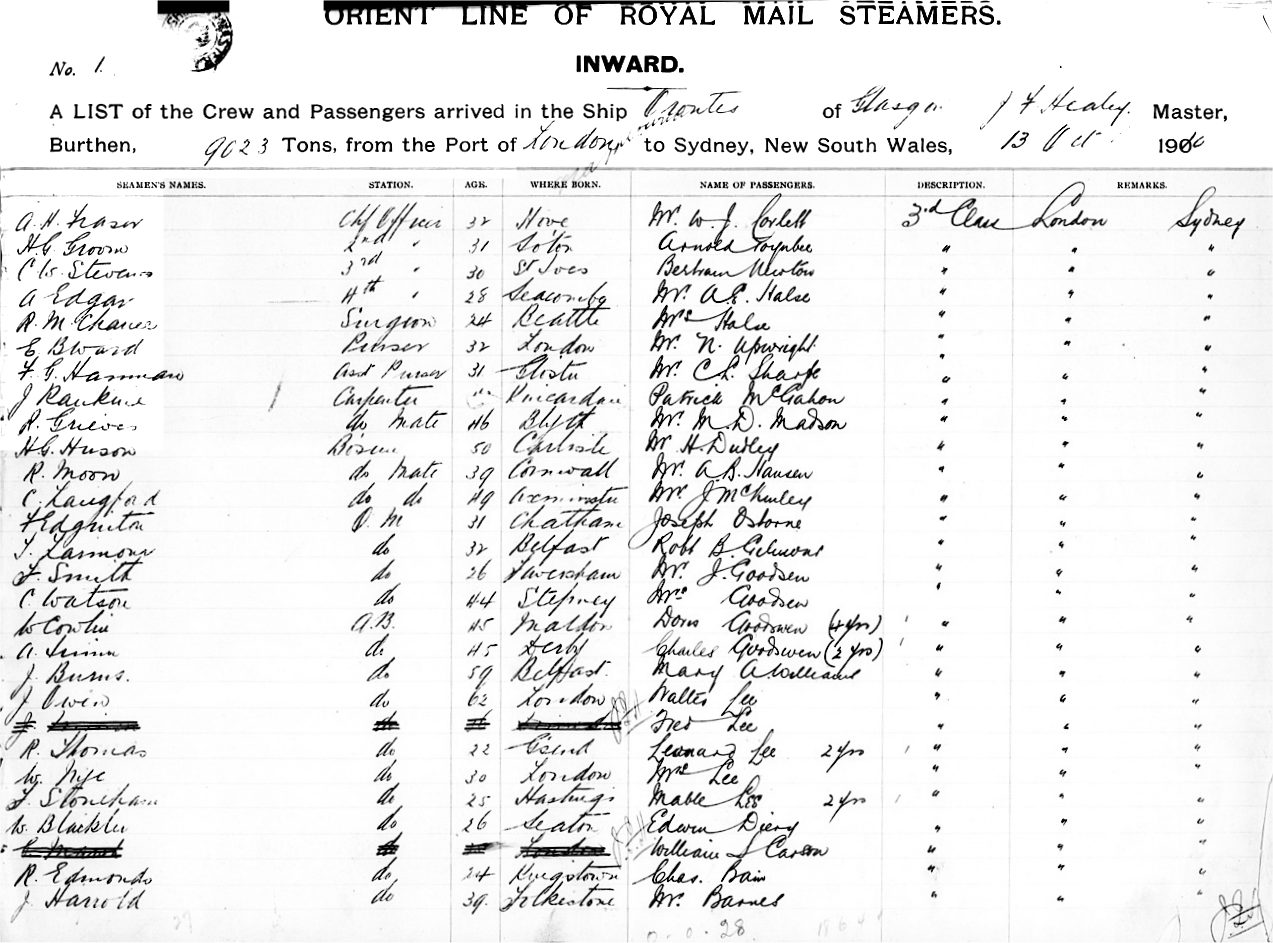 ORIENT LINE OF ROYAL MAIL STEAMERS.
No. 1.
INWARD.
A LIST of the Crew and Passengers arrived in the Ship Orontes of Glasgow J F Healey Master,
Burthen, 9023 Tons, from the Port of London to Sydney, New South Wales, 13 Oct. 190
SEAMEN'S NAMES. STATION. AGE. WHERE BORN. NAME OF PASSENGERS. DESCRIPTION. REMARKS.
A. H. Fraser Chf Officer 32 Hove Mr. W. J. Corlett 3rd Class London Sydney
H. G. Groom 2nd " 31 Soton Arnold Toynbee " " "
C W. Stevens 3rd " 30 St Ives Bertram Newton " " "
A Edgar 4th " 28 Seacombe Mr. A. E. Halse " " "
R. M. Surgeon 24 Mrs Halse " " "
E Bward Purser 32 London Mr. N. Upwright " " "
F. G. Hamman Asst Purser 31 Gloster Mr. C. L. Sharpe " " "
J Rankine Carpenter Kincardine Patrick McGahon " " "
R. Grieves do Mate 46 Blyth Mr. M. D. Madson " " "
H. G. Huson 50 Carlisle Mr H. Dudley " " "
R. Moon do Mate 39 Cornwall Mr. A. B. Hansen " " "
C. Langford do do 49 Axminster Mr. J. McKinley " " "
F Edginton Q. M 31 Chatham Joseph Osborne " " "
T. Larmour do 32 Belfast Robt B. Gilmour " " "
F. Smith do 26 Faversham Mr. J. Goodsen " " "
C Watson do 44 Stepney Mrs Goodsen " " "
W Cowlin A.B. 45 Maldon Doris Goodswen (4 yrs) " " "
A. do 45 Derby Charles Goodswen (2 yrs) " " "
J. Burns. do 59 Belfast. Mary A. Williams " " "
J Owen do 62 London Walter Lee " " "
J. Fred Lee " " "
R. Thomas do 22 Gsend Leonard Lee 2 yrs " " "
W. Nye do 30 London Mrs Lee " " "
F. Stoneham do 25 Hastings Mable Lee 2 yrs " " "
W. Blackler do 26 Seaton Edwin Diery " " "
London William S Carson " " "
R. Edmonds do 24 Kingstown Chas. Bain " " "
J Harrold do 39. Folkestone Mr. Barnes " " "
27 28